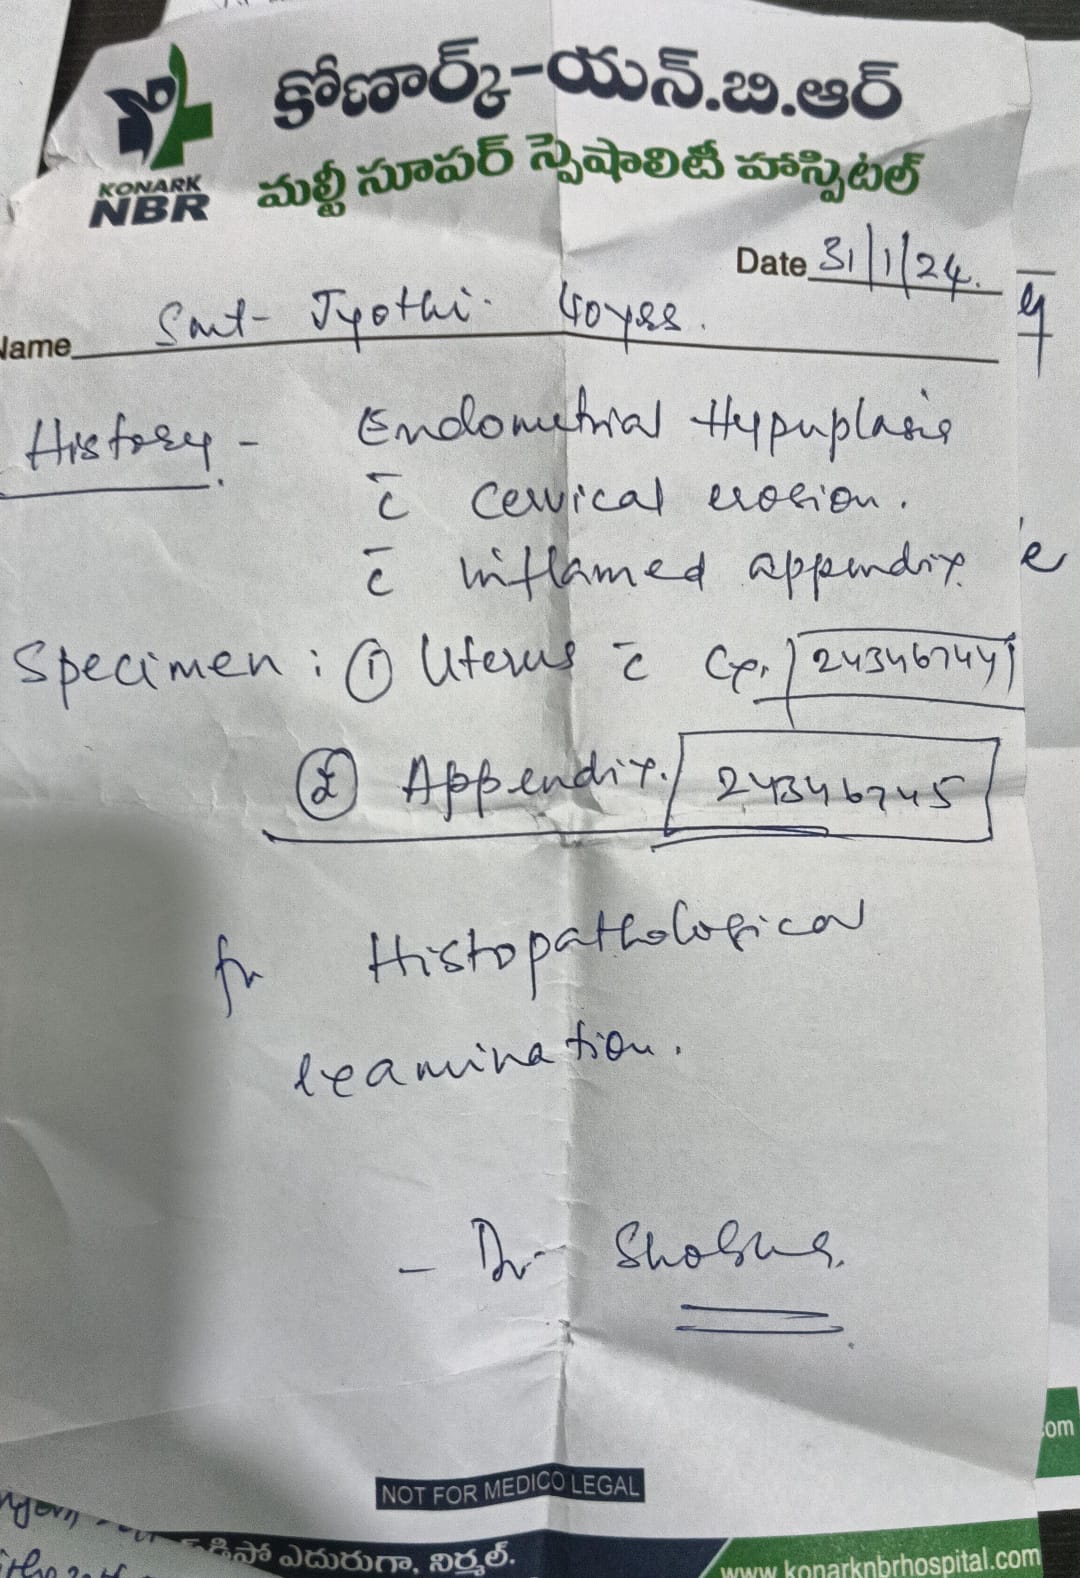 కోణార్క్-యన్.బి.ఆర్
మల్టీ సూపర్ స్పెషాలిటీ హాస్పిటల్
KONARK
NBR
Date 31/1/24.
Name Smt- Jyothi. 40yrs.
History - Endometrial Hyperplasia
c̄ cervical erosion.
c̄ inflamed appendix.
Specimen: ① Uterus c̄ Cx. 24346744
② Appendix. 24346745
for Histopathological
examination.
- Dr- Shobha.
NOT FOR MEDICO LEGAL
డిపో ఎదురుగా, నిర్మల్.
www.konarknbrhospital.com
om